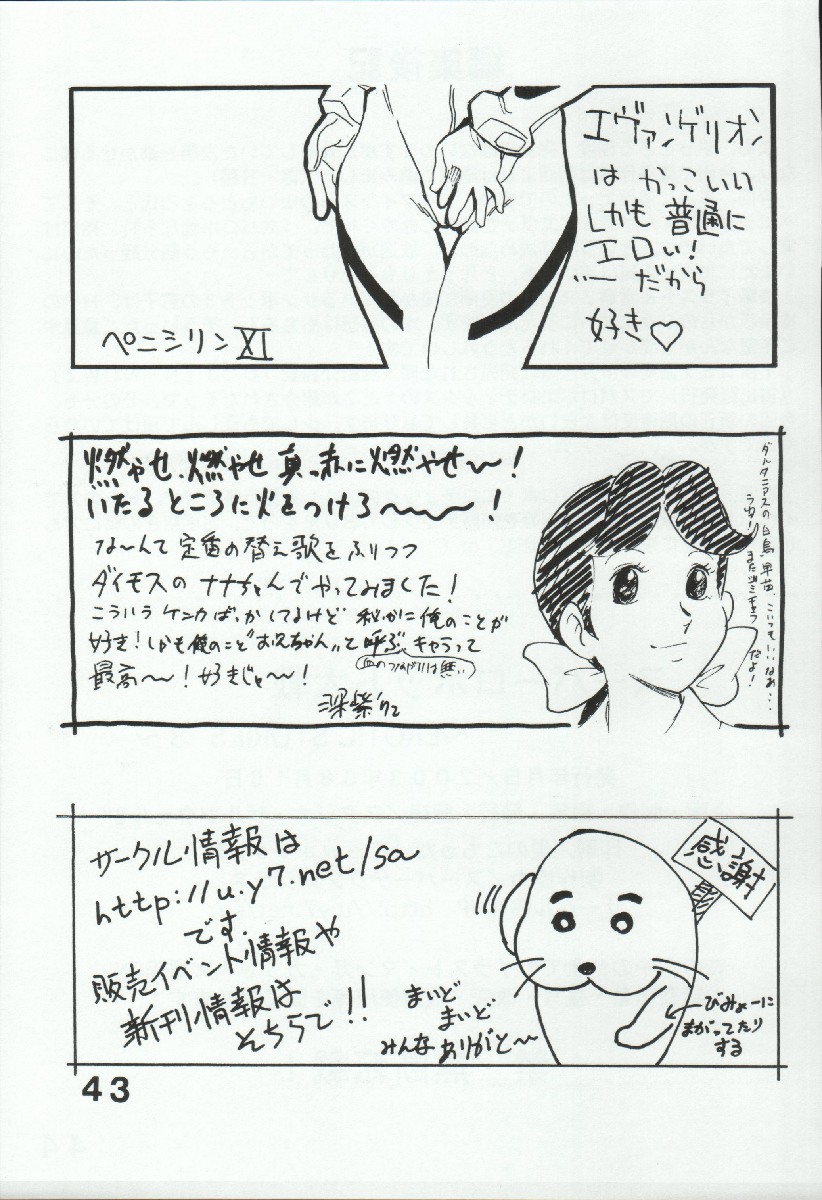 エヴァンゲリオン
はかっこいい
しかも普通に
エロい!
…だから
好き♡
ペニシリンXI
燃やせ、燃やせ 真っ赤に燃やせ〜!
いたるところに火をつけろ〜〜〜!
な〜んて定番の替え歌をふりつつ
ダイモスのナナちゃんでやってみました!
こういうケンカばっかしてるけど 秘かに俺のことが
好き!しかも俺のこと"お兄ちゃん"と呼ぶキャラって
(血のつながりは無い)
最高〜!好きじゃ〜!
深紫でた
ダルタニアスの白鳥早苗、こいつもいいなぁ…
また出ミキャラ
だよ!
サークル情報は
http://u.y7.net/sa
です。
販売イベント情報や
新刊情報は
そちらで!!
まいど
まいど
みんなありがと〜
感謝
びみょーに
まがってたり
する
43